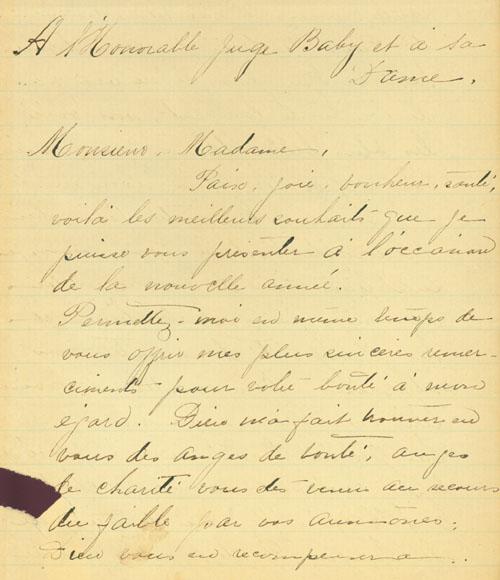 A l'Honorable Juge Baby et à sa
Dame.
Monsieur, Madame,
Paix, joie, bonheur, santé,
voilà les meilleurs souhaits que je
puisse vous présenter à l'occasion
de la nouvelle année.
Permettez-moi en même temps de
vous offrir mes plus sincères remer-
ciments pour votre bonté à mon
égard. Dieu m'a fait trouver en
vous des anges de bonté, anges
de charité vous êtes venu au secours
du faible par vos aumônes.
Dieu vous en recompensera.